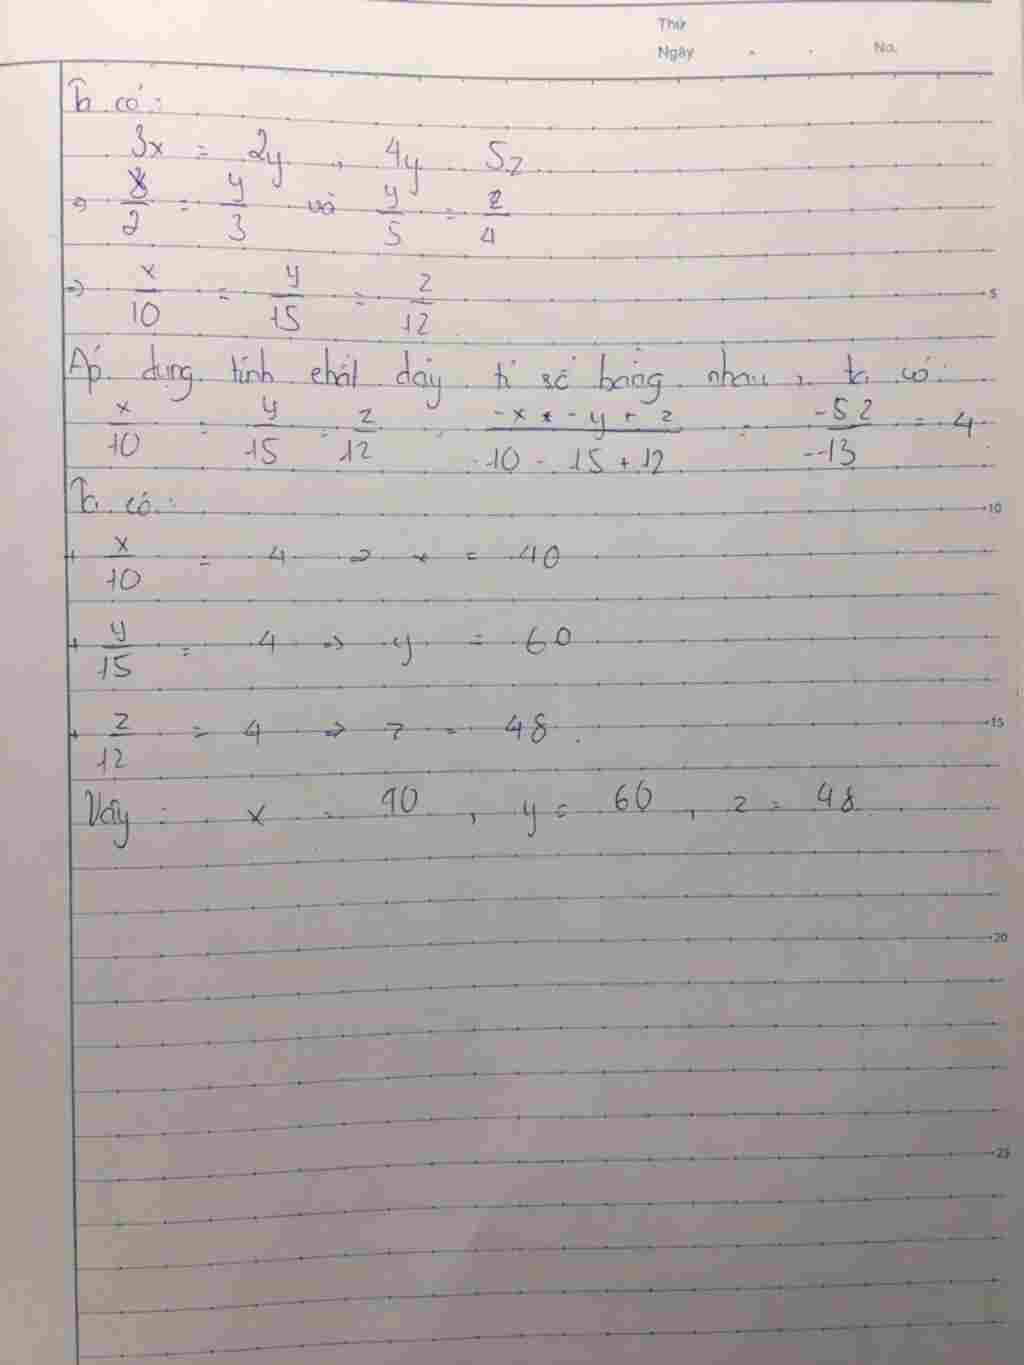 Thứ
Ngày . . No.
Ta có:
3x = 2y , 4y 5z
⇒ x/2 = y/3 và y/5 = z/4
⇒ x/10 = y/15 = z/12
5
Áp dụng tính chất dãy tỉ số bằng nhau, ta có:
x/10 = y/15 = z/12 = (-x - y + z)/(-10 - 15 + 12) = -52/-13 = 4
Ta có:
10
+ x/10 = 4 ⇒ x = 40
+ y/15 = 4 ⇒ y = 60
+ z/12 = 4 ⇒ z = 48.
15
Vậy: x = 40, y = 60, z = 48.
20
25